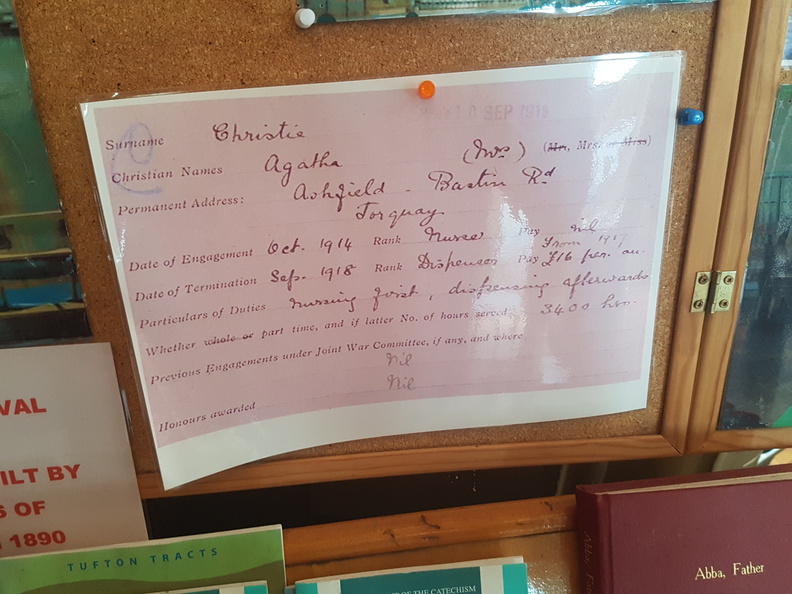 10 SEP 1918
Surname Christie
Christian Names Agatha (Mrs) (Mr, Mrs. or Miss)
Permanent Address: Ashfield - Barton Rd
Torquay
Date of Engagement Oct. 1914 Rank Nurse Pay nil
from 1917
Date of Termination Sep. 1918 Rank Dispenser Pay £16 per. an.
Particulars of Duties Nursing first, dispensing afterwards
Whether whole or part time, and if latter No. of hours served 3400 hrs.
Previous Engagements under Joint War Committee, if any, and where
nil
Nil
Honours awarded
VAL
ILT BY
S OF
1890
TUFTON TRACTS
OF THE CATECHISM
Abba, Father
Abba,